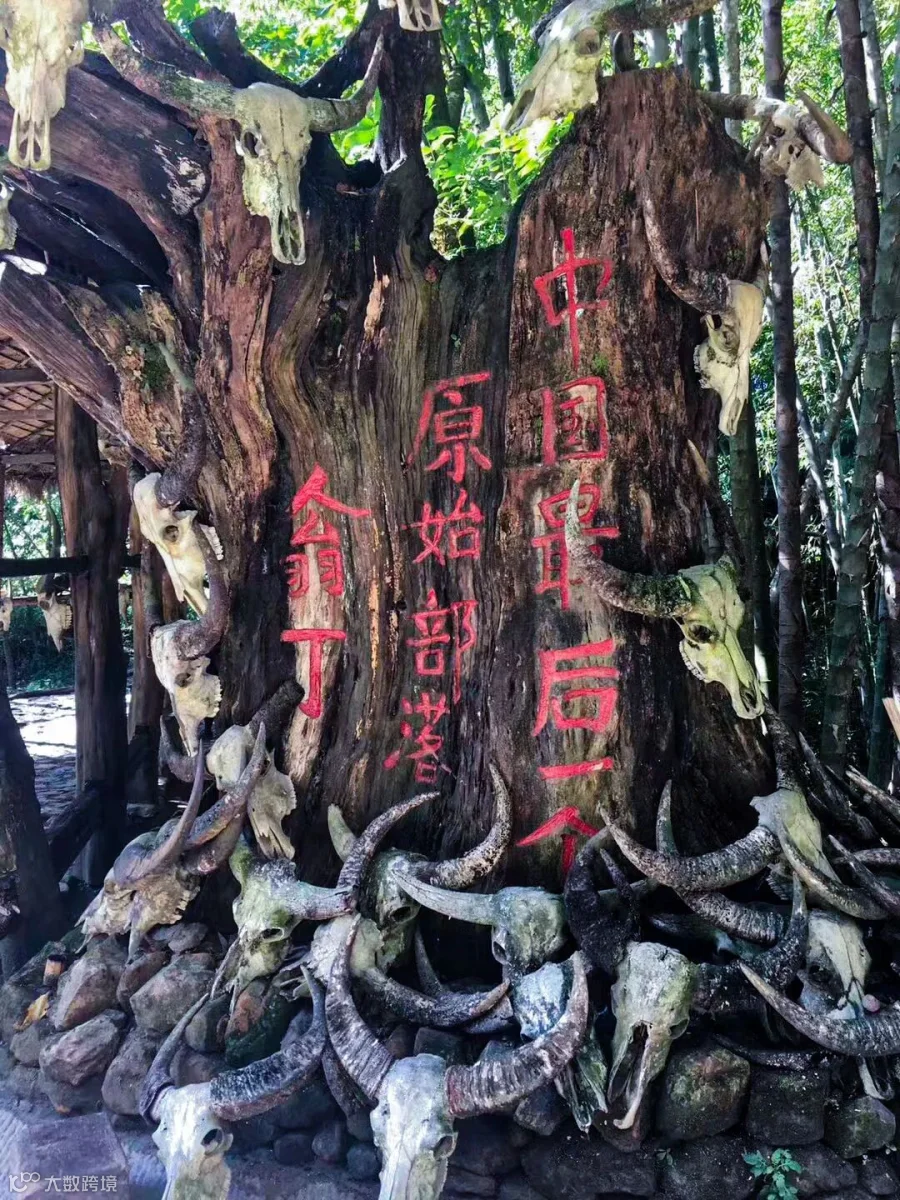 中国最后一个
原始部落
翁丁
大数跨境